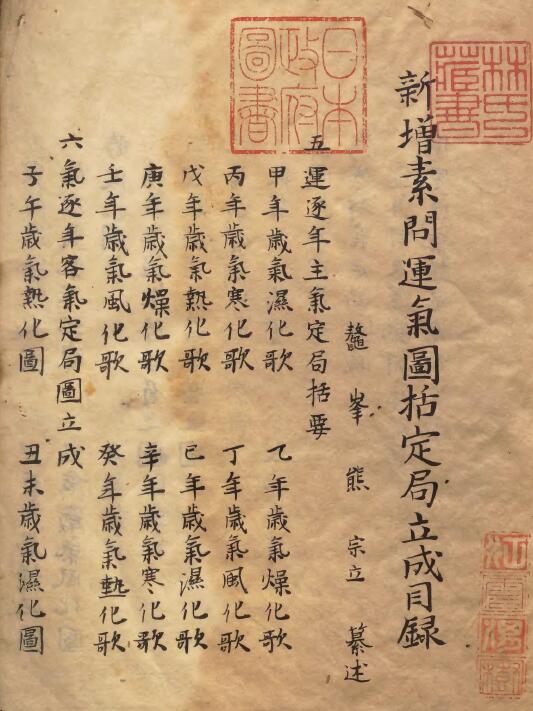 新增素問運氣圖括定局立成目録
鼇峯熊宗立纂述
五運逐年主氣定局括要
甲年歲氣濕化歌　乙年歲氣燥化歌
丙年歲氣寒化歌　丁年歲氣風化歌
戊年歲氣熱化歌　己年歲氣濕化歌
庚年歲氣燥化歌　辛年歲氣寒化歌
壬年歲氣風化歌　癸年歲氣熱化歌
六氣逐年客氣定局圖立成
子午歲氣熱化圖　丑未歲氣濕化圖
林氏藏書
日本政府圖書